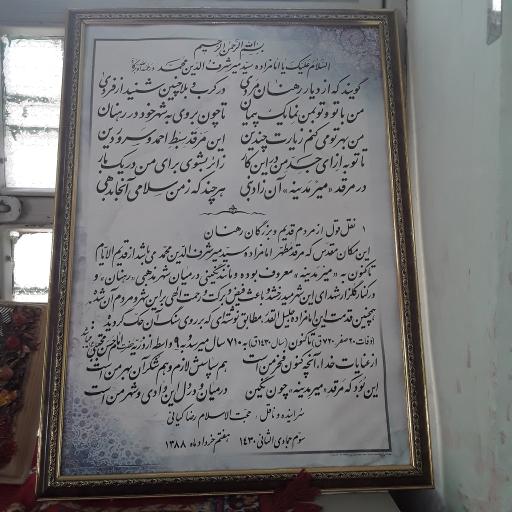 بسم الله الرحمن الرحیم
السلام علیک یا امامزاده سید میر شرف الدین محمد
گویند که از دیار رهنان مردی در کرب و بلا چنین شنید از فردی
من با تو و تو من نمایک پیمان تا چون بروی به شهر خود در رهنان
من بهر تو می کنم زیارت چندین این مرقد سبط احمد و سرور دین
تا تو به ازای جد من در این کار زائر بشوی برای من در یک بار
در مرقد «میر مدینه» آن زاد نبی هر چند که ز من سلامی آنجا بدهی
۱ نقل قول از مردم قدیم و بزرگان رهنان
این مکان مقدس که مرقد مطهر امامزاده سید میر شرف الدین محمد می باشد از قدیم الایام
تاکنون به «میر مدینه» معروف بوده و مانند نگینی در میان شهر مذهبی «رهنان» و
در کنار گلزار شهدای این شهر می درخشد و باعث فیض و برکت و رحمت الهی بر این شهر و مردم آن شده
همچنین قدمت این امامزاده جلیل القدر مطابق نوشته ای که بر روی سنگ آن حک گردیده
(وفات ۲۰ صفر ۷۲۰ ق) تاکنون (سال ۱۴۳۰ ق) به ۷۱۰ سال میرسد و به ۹ واسطه از ذریه حضرت امام حسن مجتبی
از عنایات خدا، آنچه کنون فخر من است هم سپاسش لازم و هم شکر آن بهر من است
این بود که مرقد «میر مدینه» چون نگین در میان و در دل این وادی و شهر من است
سراینده و ناقل: حجت الاسلام رضا کیانی
سوم جمادی الثانی ۱۴۳۰ هفتم خرداد ماه ۱۳۸۸